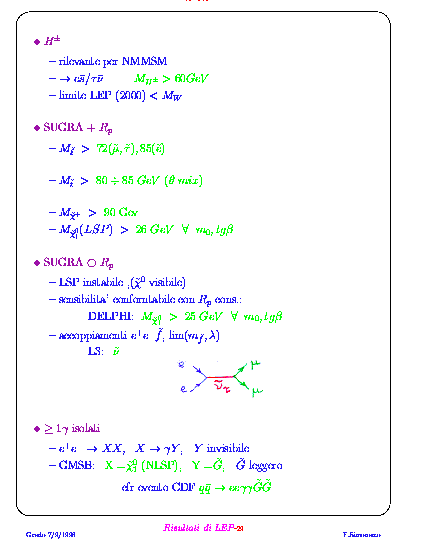 ◆ H±
– rilevante per NMMSM
– → cs̄/τν̄ M_H± > 60GeV
– limite LEP (2000) < M_W
◆ SUGRA + R_p
– M_l̃ > 72(μ̃,τ̃),85(ẽ)
– M_t̃ > 80 ÷ 85 GeV (θ mix)
– M_χ̃+ > 90 Gev
– M_χ̃⁰₁(LSP) > 26 GeV ∀ m₀,tgβ
◆ SUGRA ○ R_p
– LSP instabile ,(χ̃⁰ visibile)
– sensibilita' confortabile con R_p cons.:
DELPHI: M_χ̃⁰ > 25 GeV ∀ m₀,tgβ
– accoppiamenti e⁺e⁻ f̃, lim(m_f̃,λ)
L3: ν̃
e μ
ν̃_τ
e μ
◆ ≥ 1γ isolati
– e⁺e⁻ → XX, X → γY, Y invisibile
– GMSB: X = χ̃⁰₁ (NLSP), Y = G̃, G̃ leggero
cfr evento CDF qq̄ → eeγγG̃G̃
Risultati di LEP-29